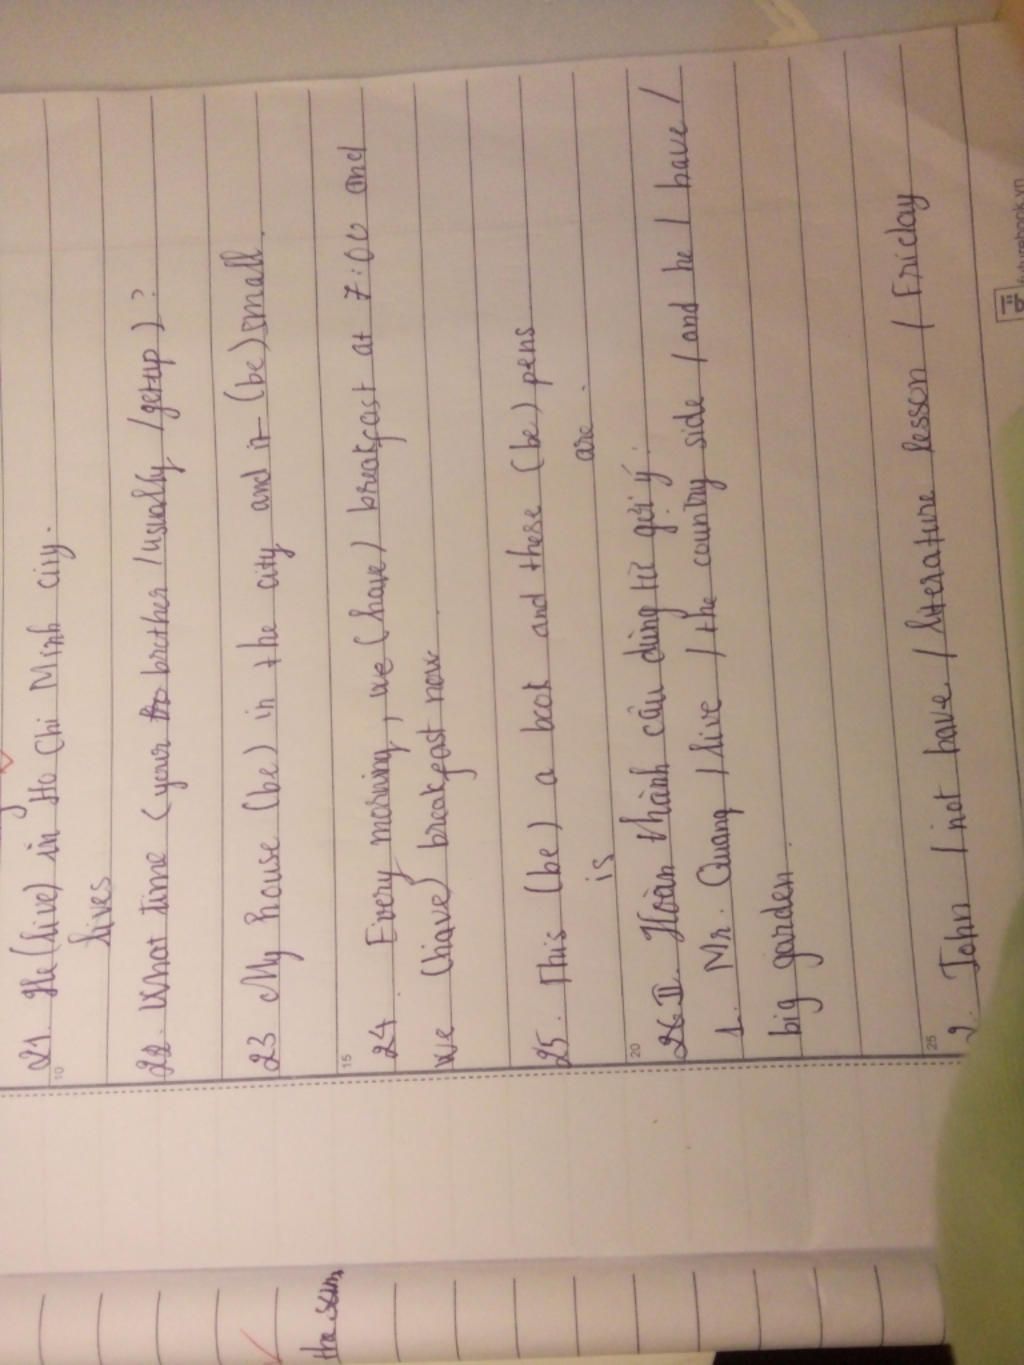 21. He (live) in Ho Chi Minh city.
lives
22. What time (your brother / usually / getup)?
23 My house (be) in the city and it (be) small.
24. Every morning, we (have) breakfast at 7:00 and
we (have) breakfast now.
25. This (be) a book and these (be) pens
is are.
26 II. Hoàn thành câu dùng từ gợi ý:
1. Mr. Quang / live / the country side / and he / have /
big garden.
2. John / not have / literature lesson / Friday
the scum
10
15
20
25